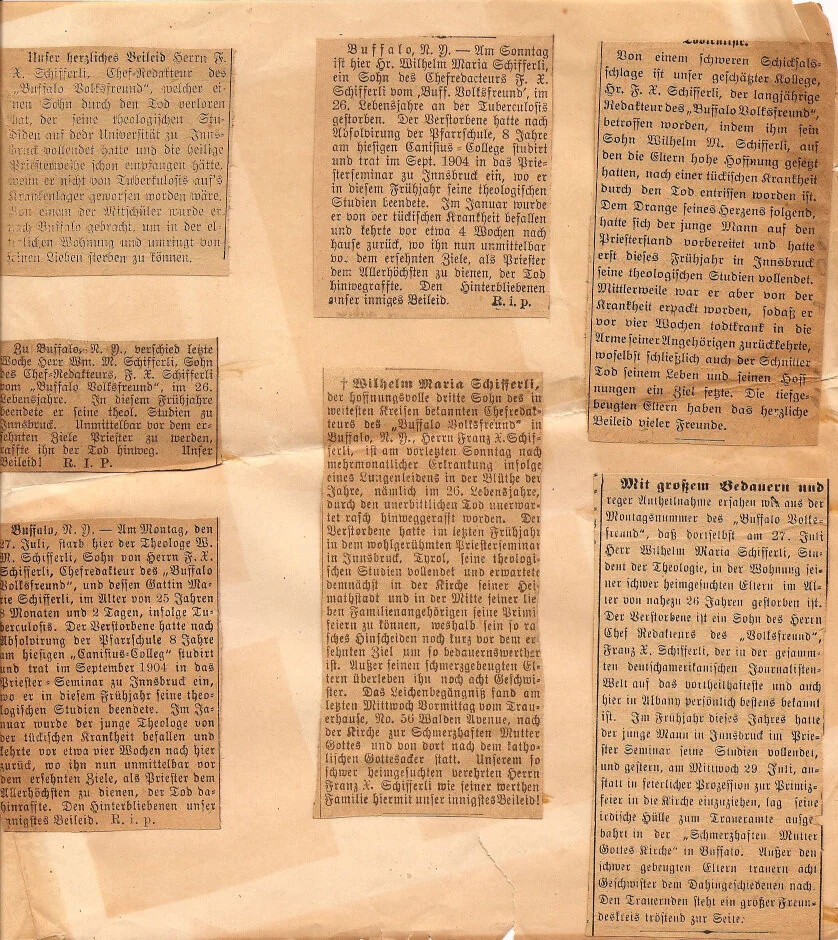 Unser herzliches Beileid Herrn F.
X. Schifferli. Chef-Redakteur des
„Buffalo Volksfreund”, welcher ei-
nen Sohn durch den Tod verloren
hat, der seine theologischen Stu-
diden auf dedr Universität zu Inns-
bruck vollendet hatte und die heilige
Priesterweihe schon empfangen hätte,
wenn er nicht von Tuberkulosis auf's
Krankenlager geworfen worden wäre.
Von einem der Mitschüler wurde er
nach Buffalo gebracht, um in der el-
terlichen Wohnung und umringt von
seinen Lieben sterben zu können.
Zu Buffalo, N. Y., verschied letzte
Woche Herr Wm. M. Schifferli, Sohn
des Chef-Redakteurs, F. X. Schifferli
vom „Buffalo Volksfreund”, im 26.
Lebensjahre. In diesem Frühjahre
beendete er seine theol. Studien zu
Innsbruck. Unmittelbar vor dem er-
sehnten Ziele Priester zu werden,
raffte ihn der Tod hinweg. Unser
Beileid! R. I. P.
Buffalo, N. Y. — Am Montag, den
27. Juli, starb hier der Theologe W.
M. Schifferli, Sohn von Herrn F. X.
Schifferli, Chefredakteur des „Buffalo
Volksfreund”, und dessen Gattin Ma-
rie Schifferli, im Alter von 25 Jahren
8 Monaten und 2 Tagen, infolge Tu-
berculosis. Der Verstorbene hatte nach
Absolvirung der Pfarrschule 8 Jahre
am hiesigen „Canisius-Colleg” studirt
und trat im September 1904 in das
Priester-Seminar zu Innsbruck ein,
wo er in diesem Frühjahr seine theo-
logischen Studien beendete. Im Ja-
nuar wurde der junge Theologe von
der tückischen Krankheit befallen und
kehrte vor etwa vier Wochen nach hier
zurück, wo ihn nun unmittelbar vor
dem ersehnten Ziele, als Priester dem
Allerhöchsten zu dienen, der Tod da-
hinraffte. Den Hinterbliebenen unser
innigstes Beileid. R. i. p.
Buffalo, N. Y. — Am Sonntag
ist hier Hr. Wilhelm Maria Schifferli,
ein Sohn des Chefredacteurs F. X.
Schifferli vom ‚Buff. Volksfreund', im
26. Lebensjahre an der Tuberculosis
gestorben. Der Verstorbene hatte nach
Absolvirung der Pfarrschule, 8 Jahre
am hiesigen Canisius-College studirt
und trat im Sept. 1904 in das Prie-
sterseminar zu Innsbruck ein, wo er
in diesem Frühjahr seine theologischen
Studien beendete. Im Januar wurde
er von der tückischen Krankheit befallen
und kehrte vor etwa 4 Wochen nach
hause zurück, wo ihn nun unmittelbar
vor dem ersehnten Ziele, als Priester
dem Allerhöchsten zu dienen, der Tod
hinwegraffte. Den Hinterbliebenen
unser inniges Beileid. R. i. p.
† Wilhelm Maria Schifferli,
der hoffnungsvolle dritte Sohn des in
weitesten Kreisen bekannten Chefredak-
teurs des „Buffalo Volksfreund” in
Buffalo, N. Y., Herrn Franz X. Schif-
ferli, ist am vorletzten Sonntag nach
mehrmonatlicher Erkrankung infolge
eines Lungenleidens in der Blüthe der
Jahre, nämlich im 26. Lebensjahre,
durch den unerbittlichen Tod unerwar-
tet rasch hinweggerafft worden. Der
Verstorbene hatte im letzten Frühjahr
in dem wohlgerühmten Priesterseminar
in Innsbruck, Tyrol, seine theologi-
schen Studien vollendet und erwartete
demnächst in der Kirche seiner Hei-
mathstadt und in der Mitte seiner lie
ben Familienangehörigen seine Primi
feiern zu können, weshalb sein so ra
sches Hinscheiden noch kurz vor dem er
sehnten Ziel um so bedauernswerther
ist. Außer seinen schmerzgebeugten El-
tern überleben ihn noch acht Geschwi-
ster. Das Leichenbegängniß fand am
letzten Mittwoch Vormittag vom Trau-
erhause, No. 56 Walden Avenue, nach
der Kirche zur Schmerzhaften Mutter
Gottes und von dort nach dem katho-
lischen Gottesacker statt. Unserem so
schwer heimgesuchten verehrten Herrn
Franz X. Schifferli wie seiner werthen
Familie hiermit unser innigstes Beileid!
Todtenliste.
Von einem schweren Schicksals-
schlage ist unser geschätzter Kollege,
Hr. F. X. Schifferli, der langjährige
Redakteur des „Buffalo Volksfreund”,
betroffen worden, indem ihm sein
Sohn Wilhelm M. Schifferli, auf
den die Eltern hohe Hoffnung gesetzt
hatten, nach einer tückischen Krankheit
durch den Tod entrissen worden ist.
Dem Drange seines Herzens folgend,
hatte sich der junge Mann auf den
Priesterstand vorbereitet und hatte
erst dieses Frühjahr in Innsbruck
seine theologischen Studien vollendet.
Mittlerweile war er aber von der
Krankheit erpackt worden, sodaß er
vor vier Wochen todtkrank in die
Arme seiner Angehörigen zurückkehrte,
woselbst schließlich auch der Schnitter
Tod seinem Leben und seinen Hoff
nungen ein Ziel setzte. Die tiefge-
beugten Eltern haben das herzliche
Beileid vieler Freunde.
Mit großem Bedauern und
reger Antheilnahme erfahen wir aus der
Montagsnummer des „Buffalo Volks-
freund”, daß dortselbst am 27. Juli
Herr Wilhelm Maria Schifferli, Stu-
dent der Theologie, in der Wohnung sei-
ner schwer heimgesuchten Eltern im Al-
ter von nahezu 26 Jahren gestorben ist.
Der Verstorbene ist ein Sohn des Herrn
Chef Redakteurs des „Volksfreund”,
Franz X. Schifferli, der in der gesamm-
ten deutschamerikanischen Journalisten-
Welt auf das vortheilhafteste und auch
hier in Albany persönlich bestens bekannt
ist. Im Frühjahr dieses Jahres hatte
der junge Mann in Innsbruck im Prie-
ster Seminar seine Studien vollendet,
und gestern, am Mittwoch 29 Juli, an-
statt in feierlicher Prozession zur Primiz-
feier in die Kirche einzuziehen, lag seine
irdische Hülle zum Traueramte aufge-
bahrt in der „Schmerzhaften Mutter
Gottes Kirche” in Buffalo. Außer den
schwer gebeugten Eltern trauern acht
Geschwister dem Dahingeschiedenen nach.
Den Trauernden steht ein großer Freun-
deskreis tröstend zur Seite.